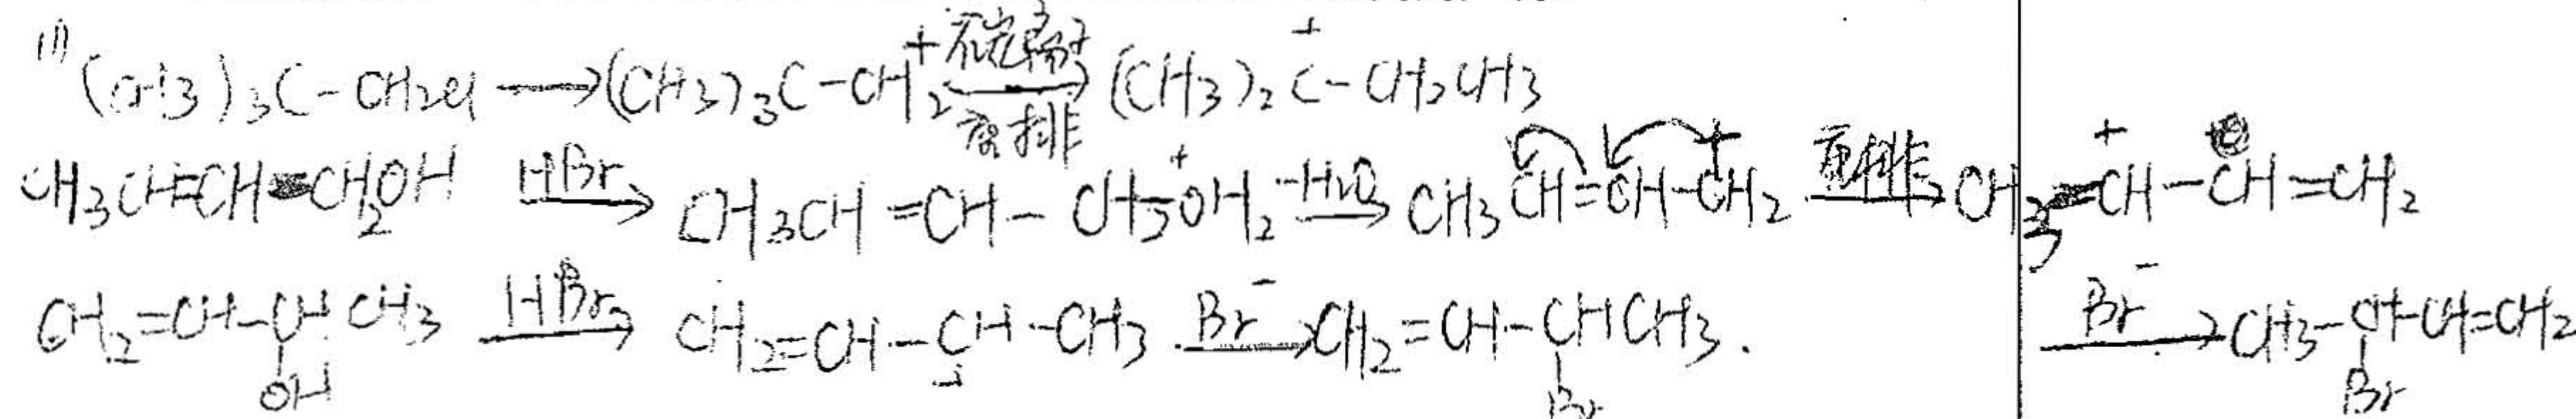 (1) (CH3)3C-CH2Cl ⟶ (CH3)3C-CH2⁺ 碳正离子 重排 ⟶ (CH3)2C⁺-CH2CH3
CH3CH=CH-CH2OH HBr⟶ CH3CH=CH-CH2-O⁺H2 -H2O⟶ CH3CH=CH-C⁺H2 重排⟶ CH3-C⁺H-CH=CH2
CH2=CH-CHCH3 HBr⟶ CH2=CH-CH-CH3 Br⁻⟶ CH2=CH-CHCH3. Br⁻⟶ CH3-CH-CH=CH2
OH Br Br